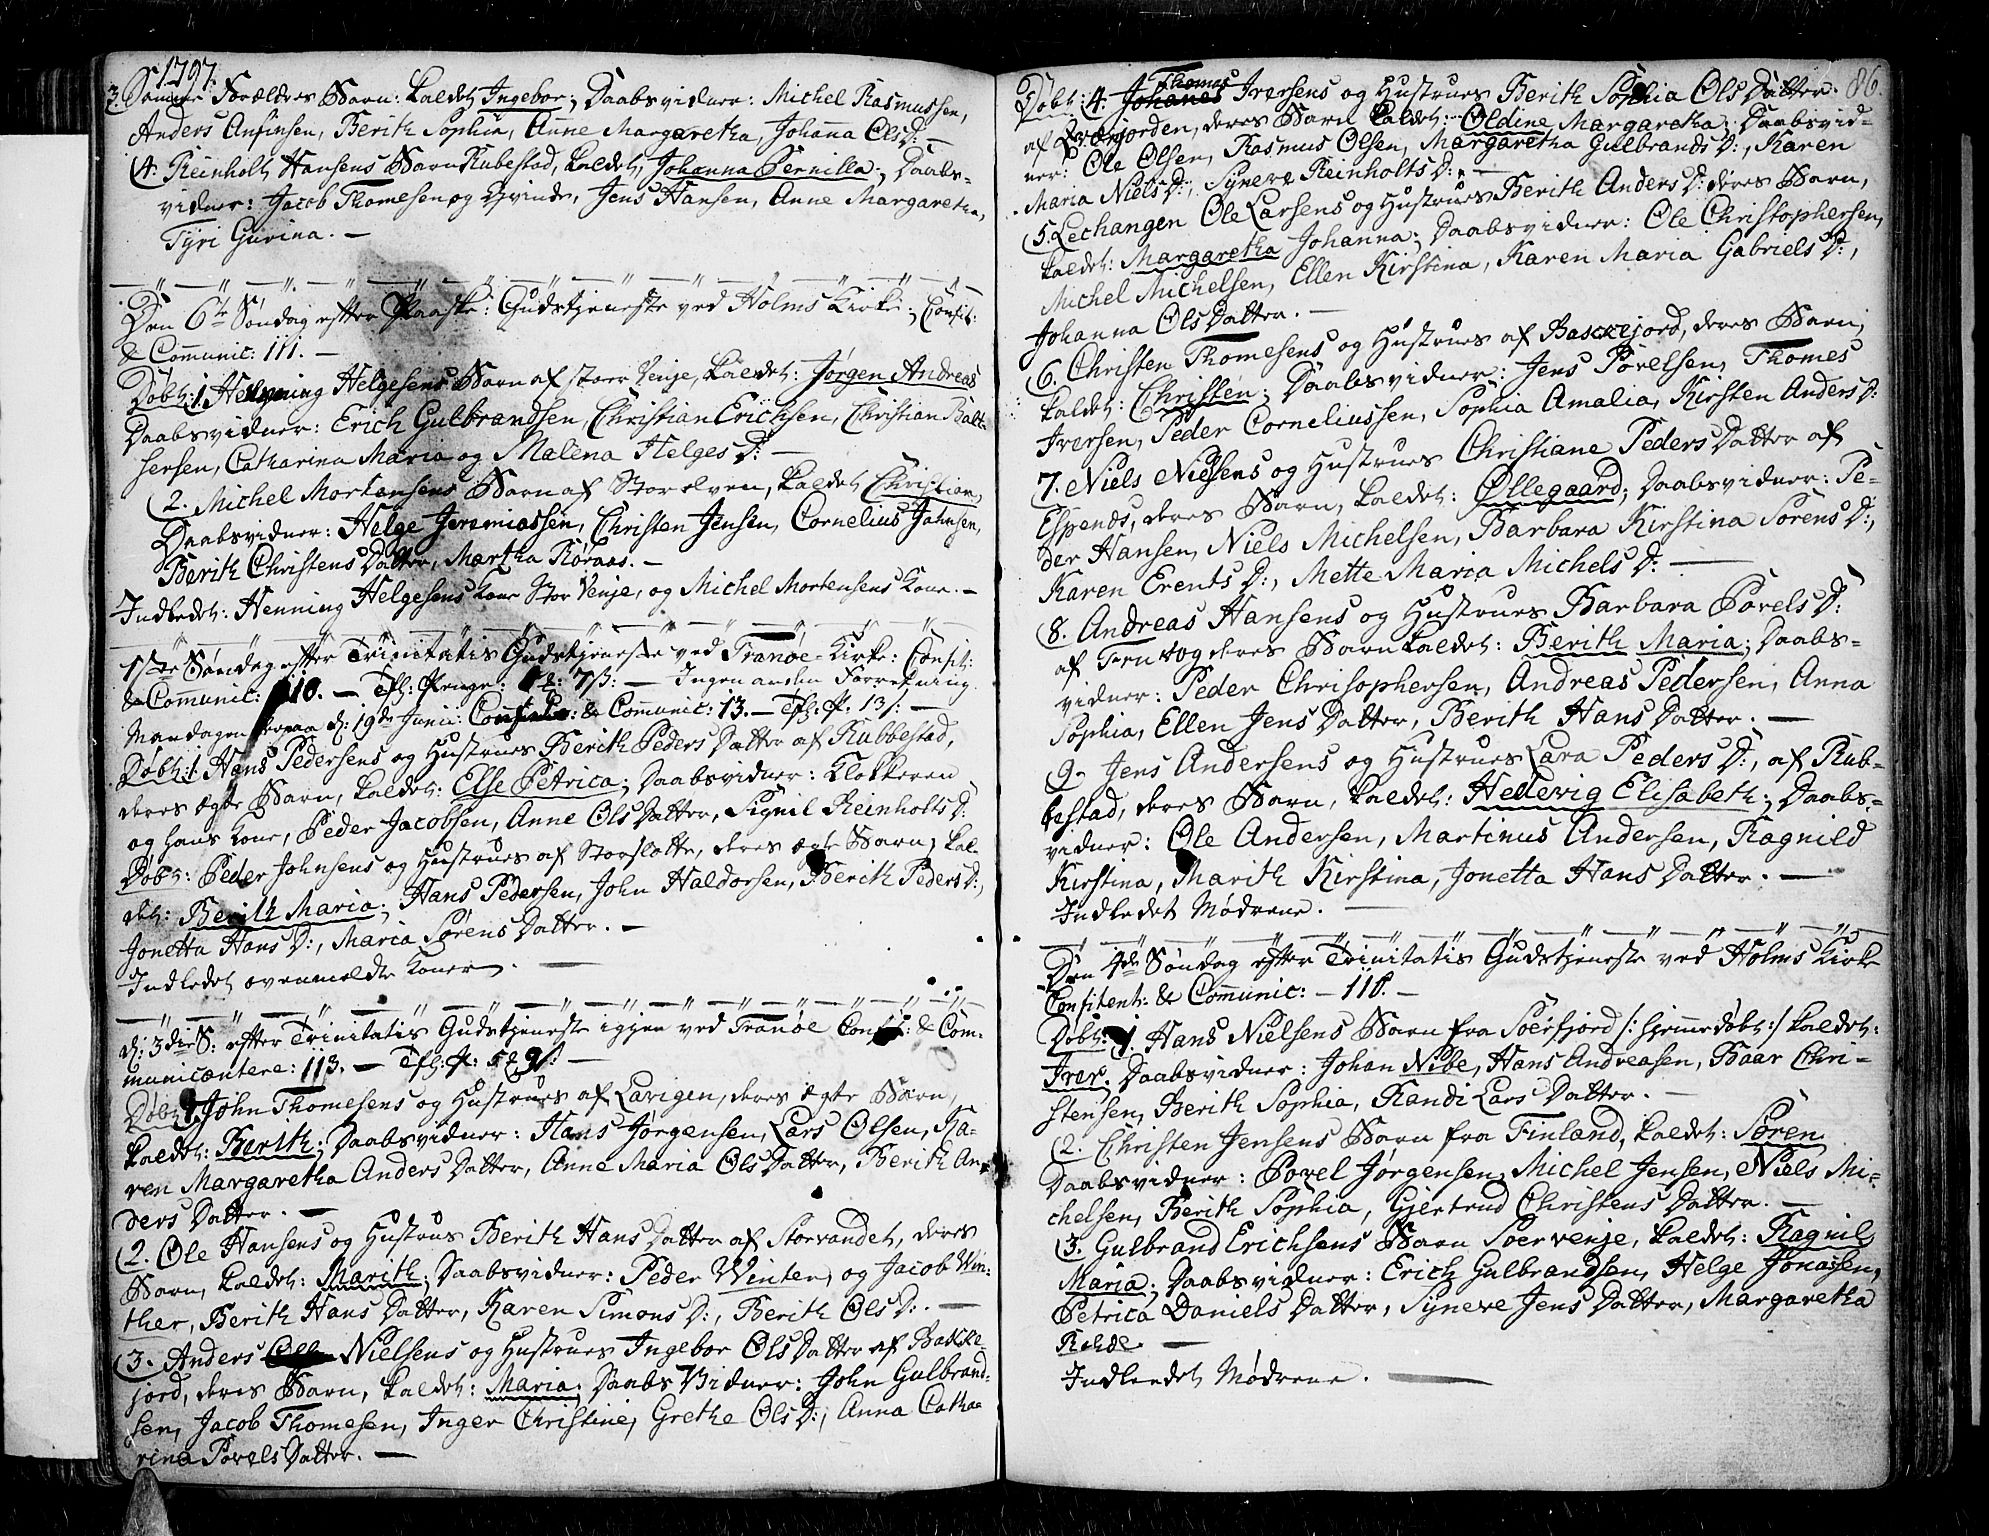 1797.
3. Samme Forældres Barn: kaldet Ingebor; Daabsvidner: Michel Rasmussen,
Anders Anfinsen, Berith Sophia, Anne Margaretha, Johanna OlsD: —
(4. Reinholt Hansens Barn Rubestad, kaldet, Johanna Pernilla; Daabs-
vidner: Jacob Thomesen og Qvinde, Jens Hansen, Anne Margaretha,
Tyri Gurina. —
Den 6te Søndag efter Paaske: Gudstjeneste ved Holms Kirke; Confit:
& Communic: 111. —
Døbt: 1. Henning Helgesens Barn af stoer Venje, kaldet: Jørgen Andreas
Daabsvidner: Erich Gulbrandsen, Christian Erichsen, Christian Balt-
sersen, Catharina Maria og Malena Helges D: —
(2. Michel Mortensens Barn af Storelven, kaldet Christian,
Daabsvidner: Helge Jeremiassen, Christen Jensen, Cornelius Johnsen,
Berith Christens Datter, Martha Røraas. —
Indledet: Henning Helgesens Kone Stor Venje, og Michel Mortensens Kone. —
1ste Søndag efter Trinitatis Gudstjeneste ved Tranøe-Kirke: Confit:
& Communic: 110. — Tfl: Penge: 7ß: — Ingen anden Forretning
Mandagen derpaa d: 19de Junii: & Communic: 13. — Tfl: P: 13ß: —
Døbt: 1 Hans Pedersens og Hustrues Berith Peders Datter af Rubbestad,
deres ægte Barn, kaldet: Else Petrica; Daabsvidner: Klokkeren
og hans Kone, Peder Jacobsen, Anne OlsDatter, Signil Reinholts D:
Døbt: Peder Johnsens og Hustrues af Storslotte, deres ægte Barn, kal-
det: Berith Maria; Hans Pedersen, John Haldorsen, Berith Peders D:,
Jonetta Hans D:, Maria Sørens Datter. —
Indledet ovenmeldte Koner. —
d: 3die S: efter Trinitatis Gudstjeneste igjen ved Tranøe & Com-
municantere: 113. — Tfl: P: 5 9ß: —
Døbt John Thomesens og Hustrues af Lavigen, deres ægte Barn,
kaldet: Berith; Daabsvidner: Hans Jørgensen, Lars Olsen, Ka-
ren Margaretha Anders Datter, Anne Maria OlsDatter, Berith An-
ders Datter. —
(2. Ole Hansens og Hustrus Berith Hans Datter af Storvandet, deres
Barn, kaldet: Marith; Daabsvidner: Peder Winter, og Jacob Win-
ther, Berith Hans Datter, Karen Simons D:, Berith Ols D:. —
(3. Anders Nielsens og Hustrues Ingebor OlsDatter af Bakke-
jord, deres Barn, kaldet: Maria; Daabs Vidner: John Gulbrand-
sen, Jacob Thomesen, Inger Christine, Grethe Ols D:, Anna Catha-
rina PovelsDatter. —
86.
Thomes
Døbt: 4. Johanes Iversens og Hustrues Berith Sophia Ols Datter
af Qværjorden, deres Barn kaldet: Oldine Margaretha; Daabsvid-
ner: Ole Olsen, Rasmus Olsen, Margaretha Gulbrands D:, Karen
Maria Niels D:, Syneve Reinholts D: —
(5. Lechangen Ole Larsens og Hustrues Berith Anders D: deres Barn,
kaldet: Margaretha Johanna; Daabsvidner: Ole Christophersen,
Michel Michelsen, Ellen Kirstina, Karen Maria Gabriels D:,
Johanna OlsDatter. —
(6. Christen Thomesens og Hustrues af Backejord, deres Barn,
kaldet: Christen; Daabsvidner: Jens Povelsen, Thomes
Iversen, Peder Corneliussen, Sophia Amalia, Kirsten Anders D:
(7. Niels Nielsens og Hustrues Christiane Peders Datter af
Espends, deres Barn, kaldet: Øllegaard; Daabsvidner: Pe-
der Hansen, Niels Michelsen, Barbara Kirstina Sørens D:,
Karen Erents D:, Mette Maria Michels D: —
(8. Andreas Hansens og Hustrues Barbara Povels D:
af deres Barn kaldet: Berith Maria; Daabs-
vidner: Peder Chrisophersen, Andreas Pedersen, Anna
Sophia, Ellen Jens Datter, Berith Hans Datter. —
(9. Jens Andersens og Hustrues Lara Peders D:, af Rub-
bestad, deres Barn, kaldet: Hedevig Elisabeth; Daabs-
vidner: Ole Andersen, Martinus Andersen, Ragnild
Kirstina, Marith Kirstina, Jonetta Hans Datter. —
Indledet Mødrene. —
Den 4de Søndag efter Trinitatis Gudstjeneste ved Holms Kirke
Confitent: & Communic: — 110. —
Døbt: 1. Hans Nielsens Barn fra Soerfjord /: hjemmedøbt :/ kaldet:
Iver. Daabsvidner: Johan Nibe, Hans Andreasen, Baar Chri-
stensen, Berith Sophia, Randi Lars Datter. —
(2. Christen Jensens Barn fra Finland, kaldet: Søren
Daabsvidner: Povel Jørgensen, Michel Jensen, Niels Mi-
chelsen, Berith Sophia, Gjertrud Christens Datter. —
(3. Gulbrand Erichsens Barn Soervenje, kaldet: Ragnil
Maria; Daabsvidner: Erich Gulbrandsen, Helge Jonassen,
Petrica Daniels Datter, Syneve Jens Datter, Margaretha
Rohde. —
Indledet Mødrene. —